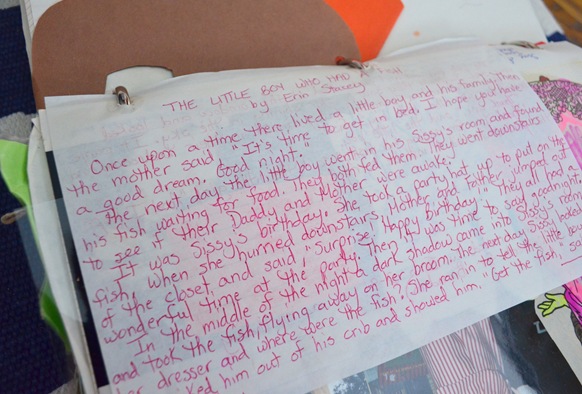 THE LITTLE BOY WHO HAD FISH
by Erin Stacey
Once upon a time there lived a little boy and his family. Then
the mother said "It's time to get in bed. I hope you have
a good dream. Good night."
the next day the little boy went in his Sissy's room and found
his fish waiting for food. They both fed them. They went downstairs
to see if their Daddy and Mother were awake.
It was Sissy's birthday. She took a party hat up to put on the
fish, when she hurried downstairs, Mother and father jumped out
of the closet and said, "Surprise! Happy birthday!" They all had a
wonderful time at the party. Then it was time to say goodnight.
In the middle of the night a dark shadow came into Sissy's room
and took the fish, flying away on her broom. the next day Sissy looked
her dresser and where were the fish? She ran in to tell the little boy
him out of his crib and showed him. "Got the fish,"